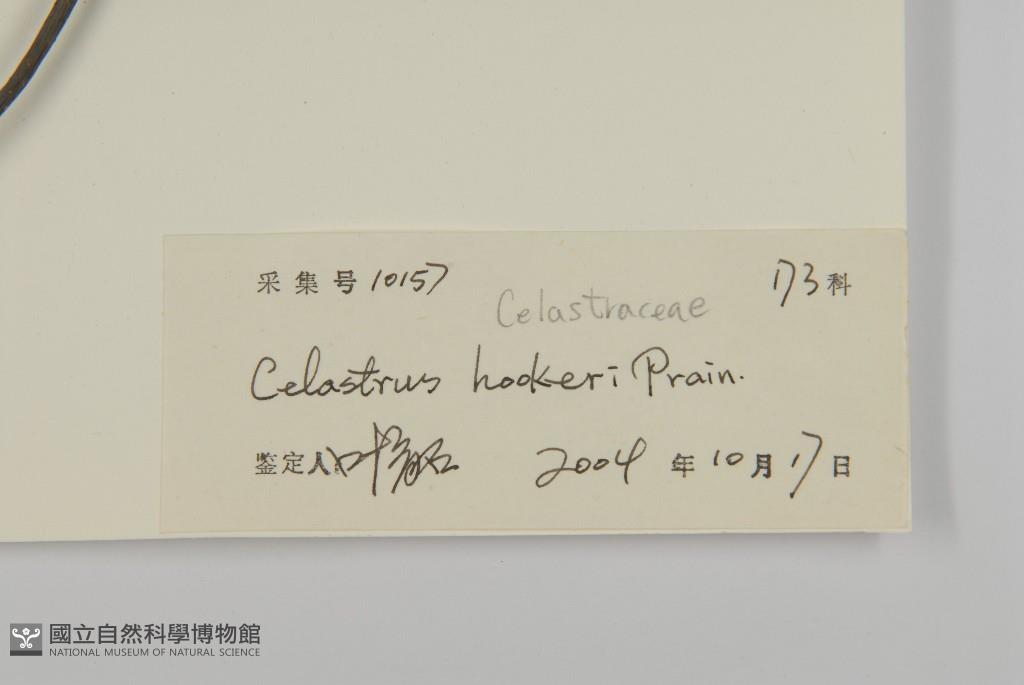 采集号 10157 173科
Celastraceae
Celastrus hookeri Prain.
鉴定人 叶 2004 年 10 月 17 日
國立自然科學博物館
NATIONAL MUSEUM OF NATURAL SCIENCE